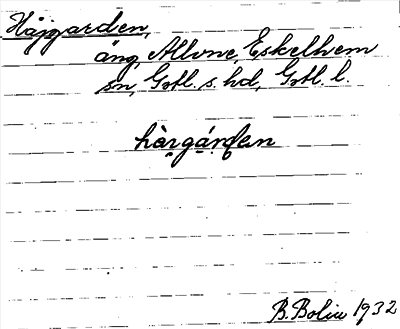 Hajgarden,
äng, Allvne, Eskelhem
sn, Gotl. s. hd, Gotl. l.
hàrgá̱rden
B. Bolin 1932